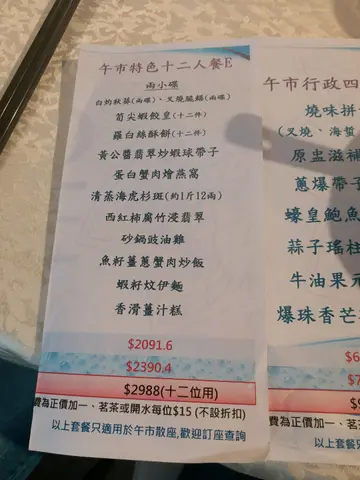 午市特色十二人餐E
兩小碟
白灼秋葵(兩碟)、叉燒腸頭(兩碟)
筍尖蝦餃皇(十二件)
羅白絲酥餅(十二件)
黃公醬翡翠炒蝦球帶子
蛋白蟹肉燴燕窩
清蒸海虎杉斑(約1斤12兩)
西紅柿腐竹浸翡翠
砂鍋豉油雞
魚籽薑蔥蟹肉炒飯
蝦籽炆伊麵
香滑薑汁糕
$2091.6
$2390.4
$2988(十二位用)
費為正價加一、茗茶或開水每位$15 (不設折扣)
以上套餐只適用於午市散座,歡迎訂座查詢
午市行政四
燒味拼
(叉燒、海蜇
原盅滋補
蔥爆帶子
蠔皇鮑魚
蒜子瑤柱
牛油果元
爆珠香芒
$6
$7
$9
費為正價加一、茗茶
以上套